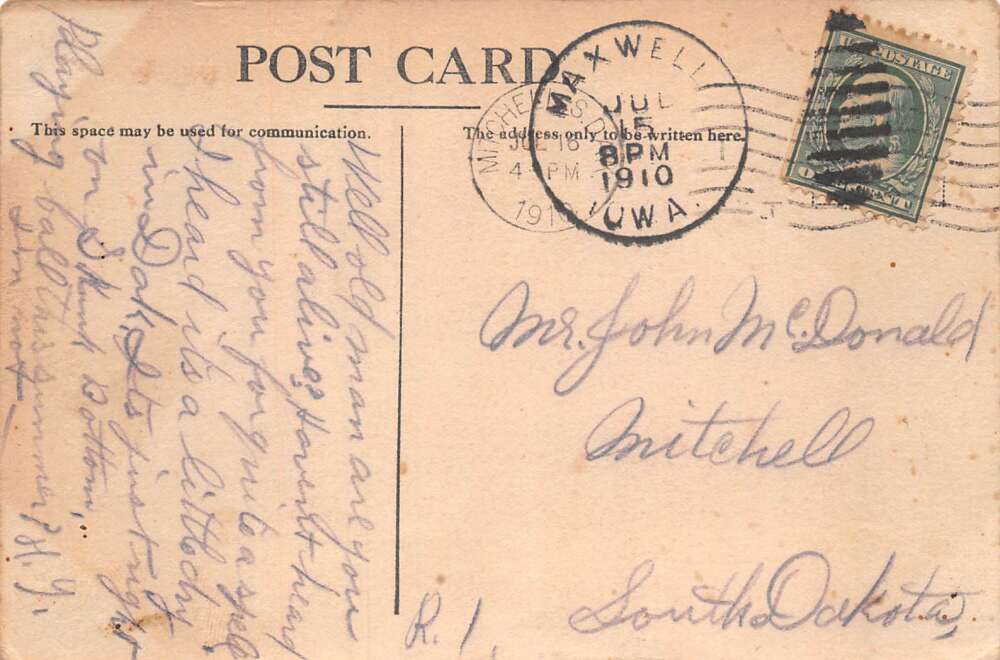 POST CARD
This space may be used for communication.
The address only to be written here.
MAXWELL
JUL
15
8 PM
1910
IOWA.
MITCHELL S.D.
JUL 16
4 PM
191
U.S. POSTAGE
1 CENT 1
Mr. John McDonald
Mitchell
South Dakota,
R. 1,
Well old man are you
still alive, Havent hear
from you for quite a spell
I heard its a little dry
in S Dak, Its just right
on Skunk Bottom,
Playing ball this summer?
Im not